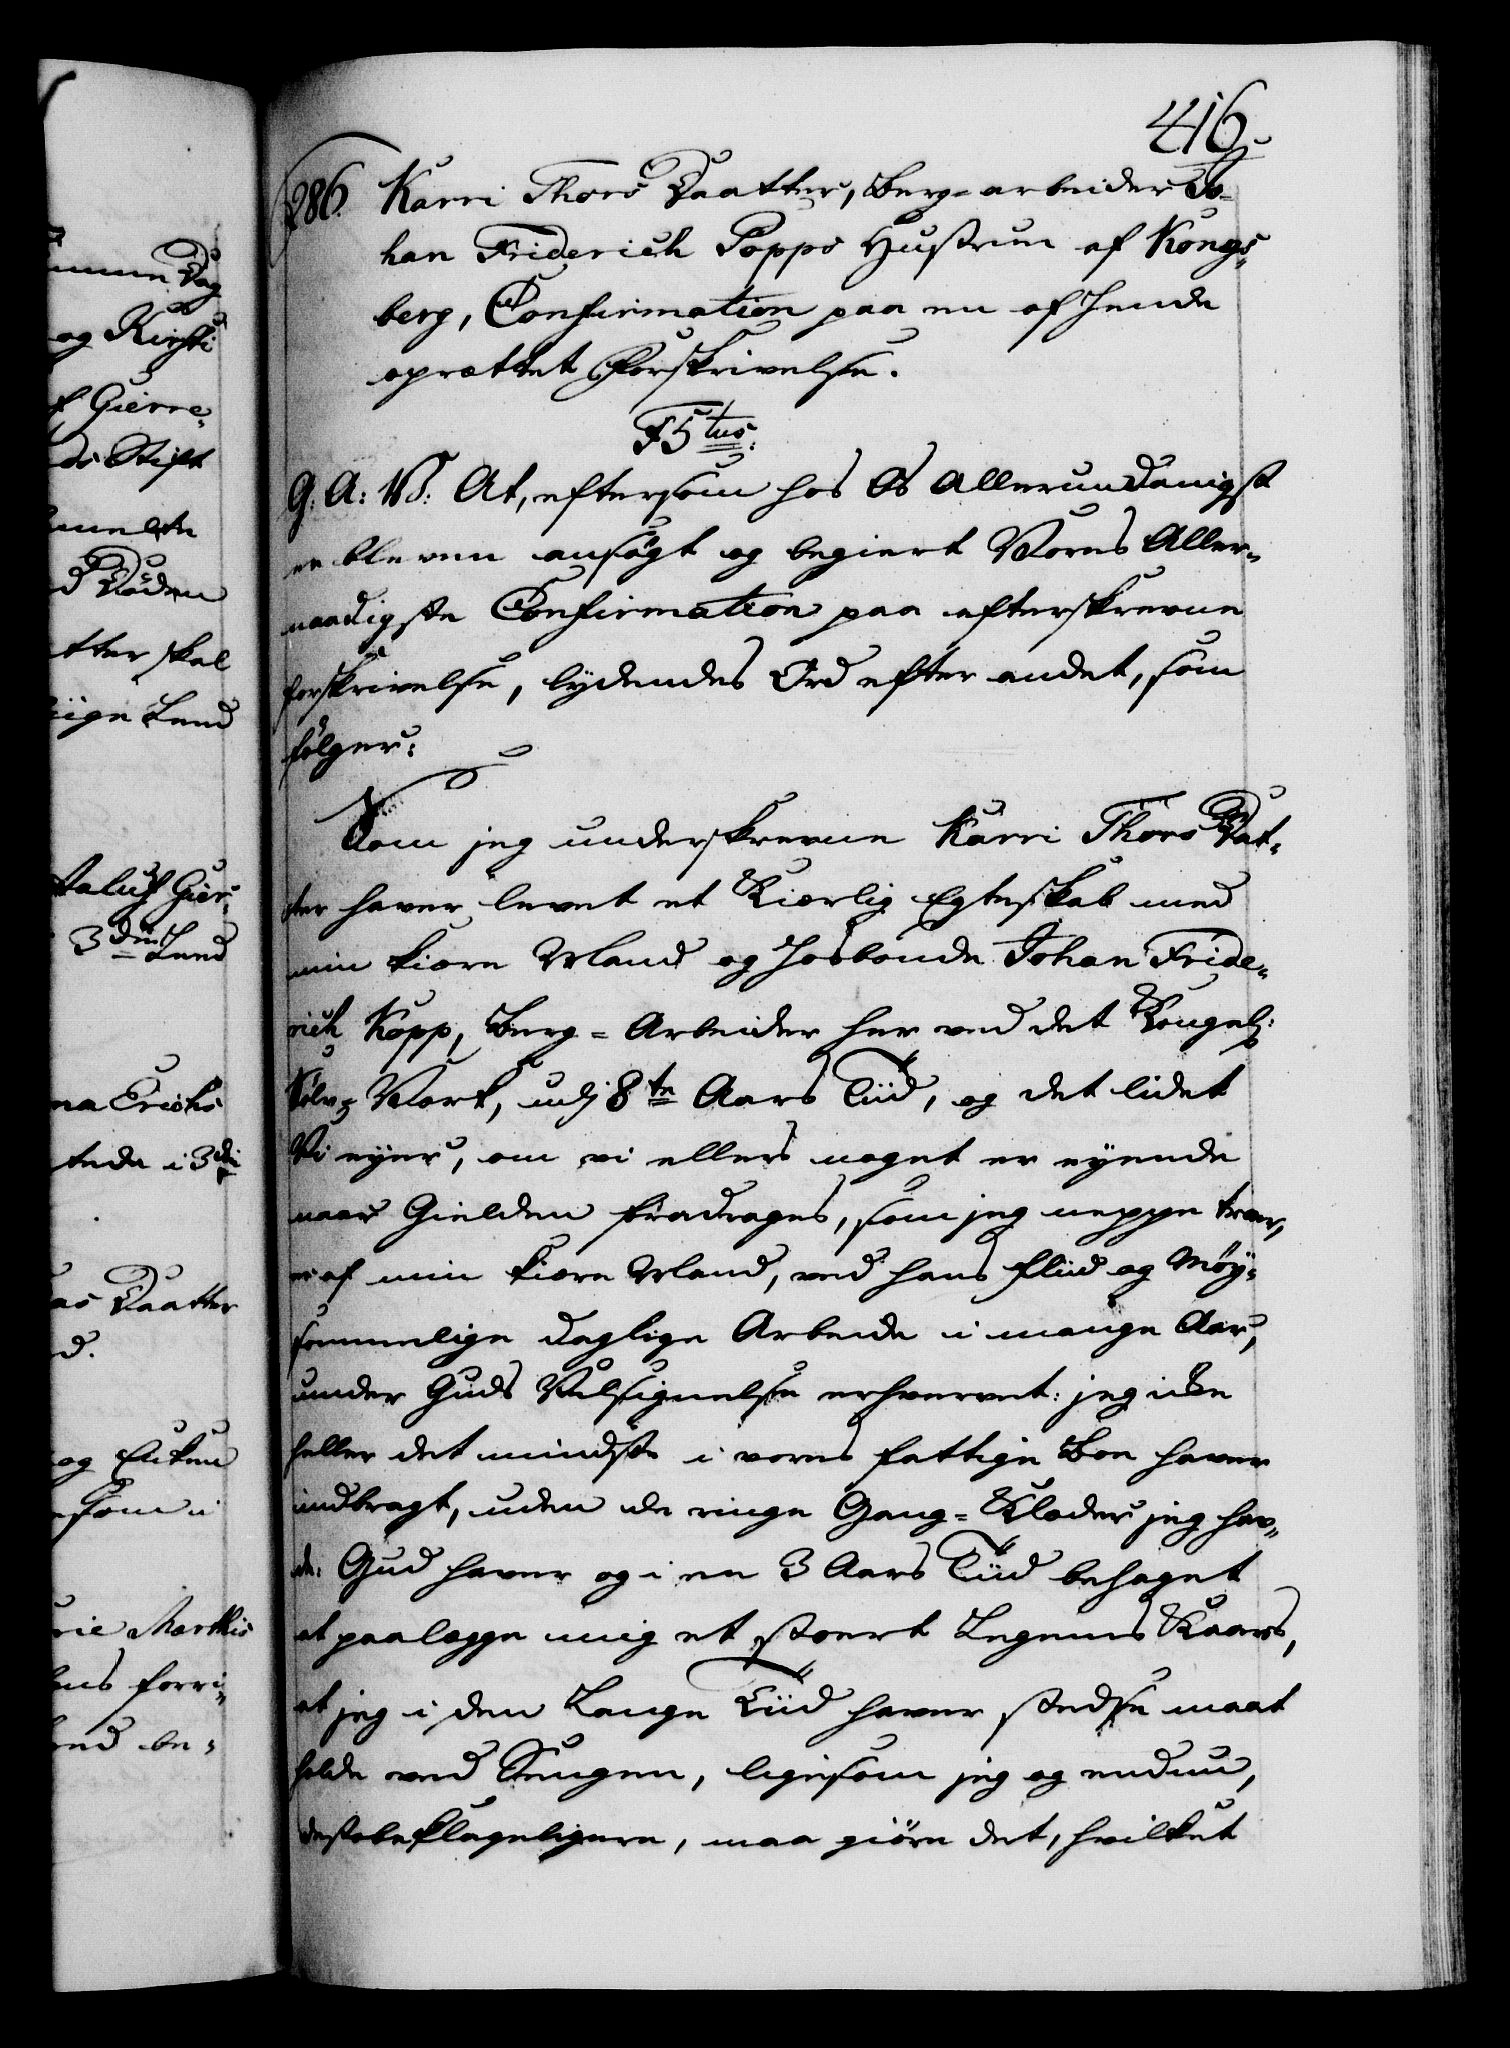 416
286. Karri Thors Daatter, Berg-arbeider Jo-
han Friderich Popps Hustrue af Kongs-
berg, Confirmation paa en af hende
oprættet Forskrivelse.
F5tus:
G. A: V: At, eftersom hos Os allerunderdanigst
er bleven ansøgt og begiert Vores Aller-
naadigste Confirmation paa efterskrevne
forskrivelse, lydendes Ord efter andet, som
følger:
Som jeg underskrevne Karri Thors Dat-
ter haver levet et Kierlig Egteskab med
min kiere Mand og Hosbonde Johan Fride-
rich Kopp, Berg-Arbeider her ved det Kongel:
Sølv-Verk, udj 8te Aars Tiid, og det lidet
Vi ejer, om vi ellers noget er ejende
naar Gielden fradrages, som jeg neppe troer,
er af min kiere Mand, ved hans fliid og Møy-
sommelige daglige Arbeide i mange Aar,
under Guds Velsignelse erhvervet: jeg ikke
heller det mindste i vores fattige Boe haver
indbragt, uden de ringe Gang-Klæder jeg hav-
de: Gud haver og i en 3 Aars Tiid behaget
at paalegge mig et stoert Legems Kaars,
at jeg i den Lange Tiid haver stedse maat
holde ved Sengen, ligesom jeg og endnu,
destobeklageligere, maa giøre det, hvilket
og Kirsti
Gierre-
Stift
skal
3die
i 3die
Daatter
og
som i
Marthis
be-